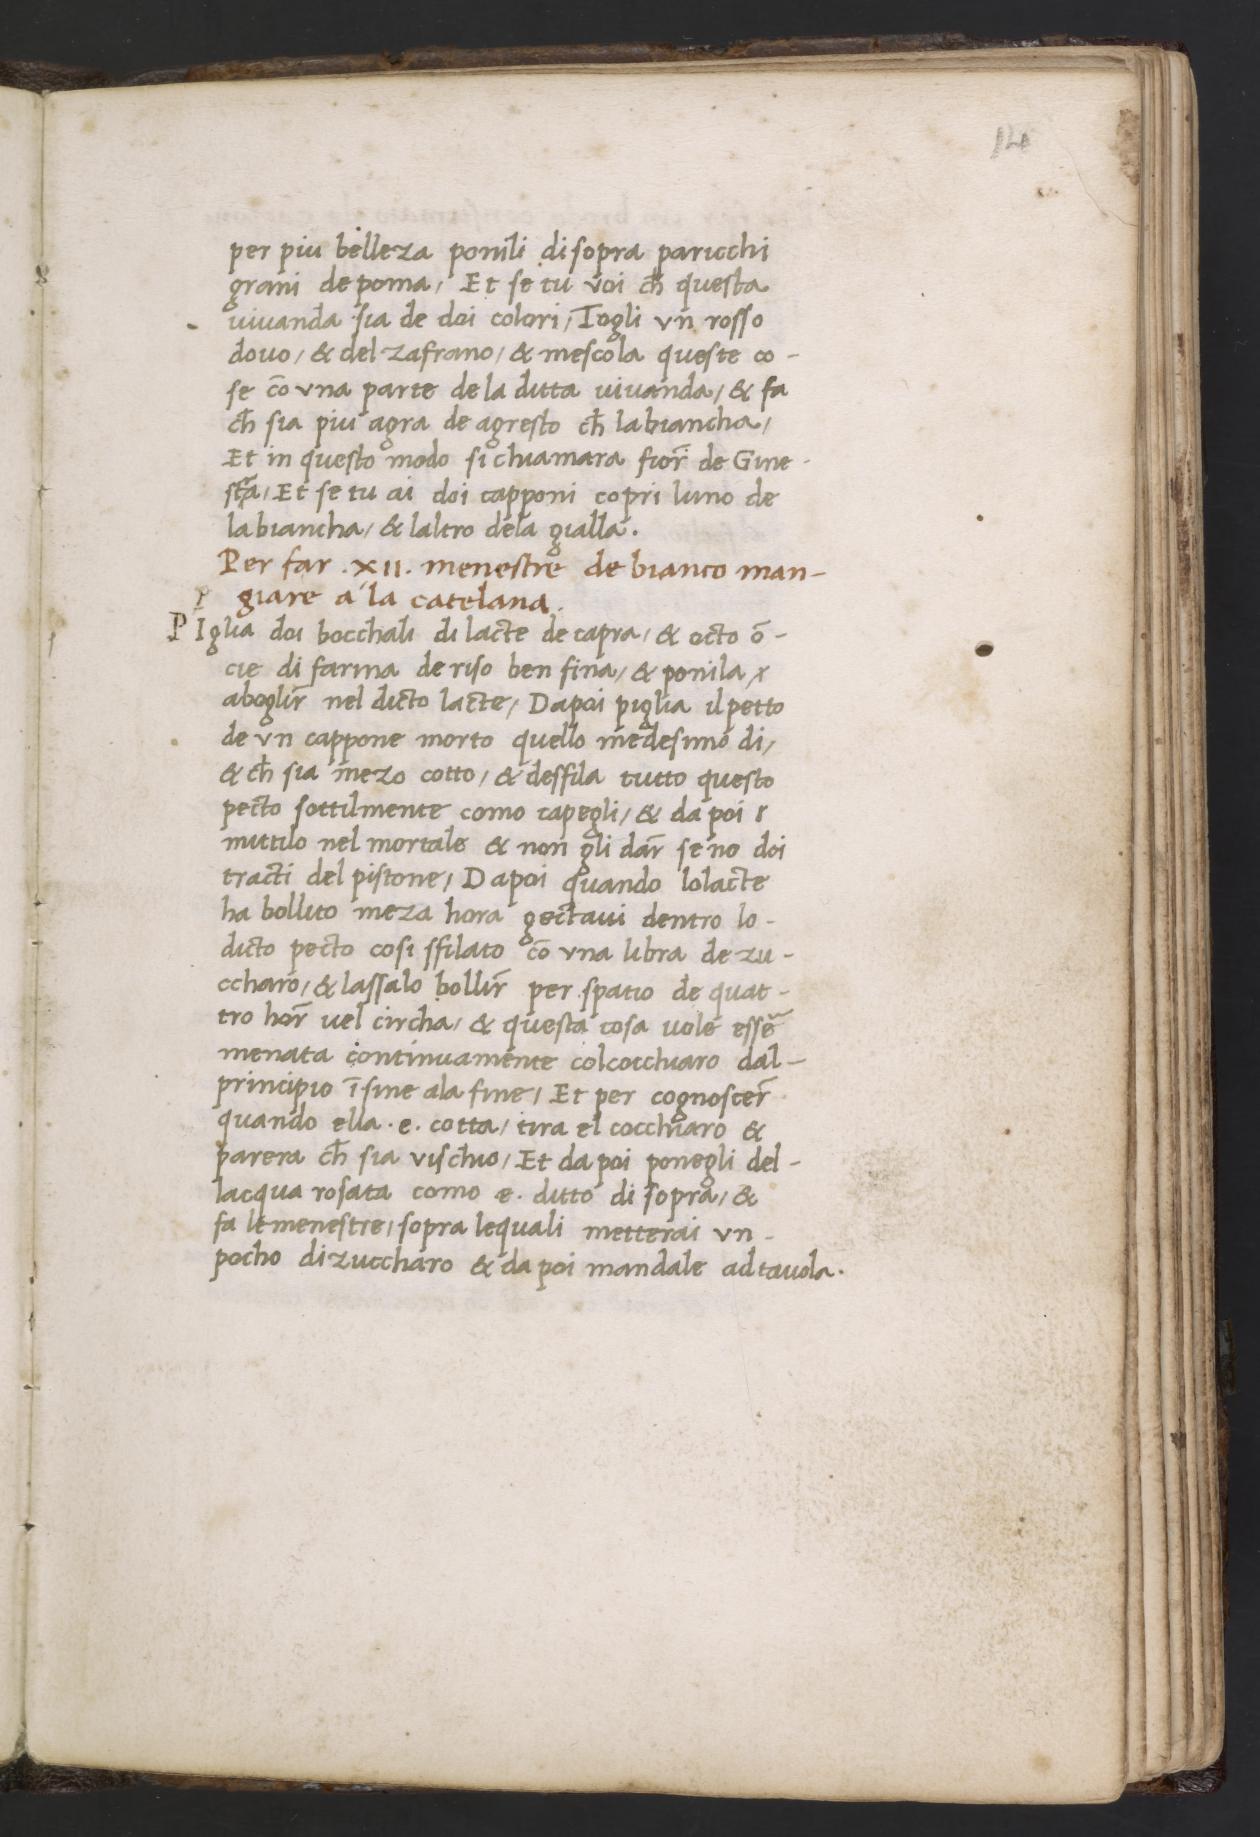 14
per piu belleza ponili di sopra paricchi
grani de poma, Et se tu voi ch̄ questa
vivanda sia de doi colori, Togli vn rosso
dovo, & del zafrano, & mescola queste co -
se cō vna parte de la ditta vivanda, & fa
ch̄ sia piu agra de agresto ch̄ la biancha,
Et in questo modo si chiamara fior̄ de Gine -
stra, Et se tu ai doi capponi copri luno de
la biancha, & laltro dela gialla.
Per far .XII. menestre de bianco man-
giare a la catelana.
P PIglia doi bocchali di lacte de capra, & octo ō -
cie di farina de riso ben fina, & ponila
a boglir̄ nel dicto lacte, Dapoi piglia il petto
de vn cappone morto quello medesimo di,
& ch̄ sia mezo cotto, & desfila tutto questo
pecto sottilmente como capegli, & da poi
mittilo nel mortale & non gli dar̄ se no doi
tracti del pistone, Dapoi quando lo lacte
ha bollito meza hora gectavi dentro lo -
dicto pecto cosi sfilato cō vna libra de zu -
ccharo, & lassalo bollir̄ per spatio de quat -
tro hor̄ vel circha, & questa cosa vole esser̄
menata continuamente col cocchiaro dal -
principio īsine ala fine, Et per cognoscer̄
quando ella .e. cotta, tira el cocchiaro &
parera ch̄ sia vischio, Et da poi ponegli del -
lacqua rosata como e. ditto di sopra, &
fa le menestre, sopra lequali metterai vn -
pocho di zuccharo & da poi mandale ad tavola.